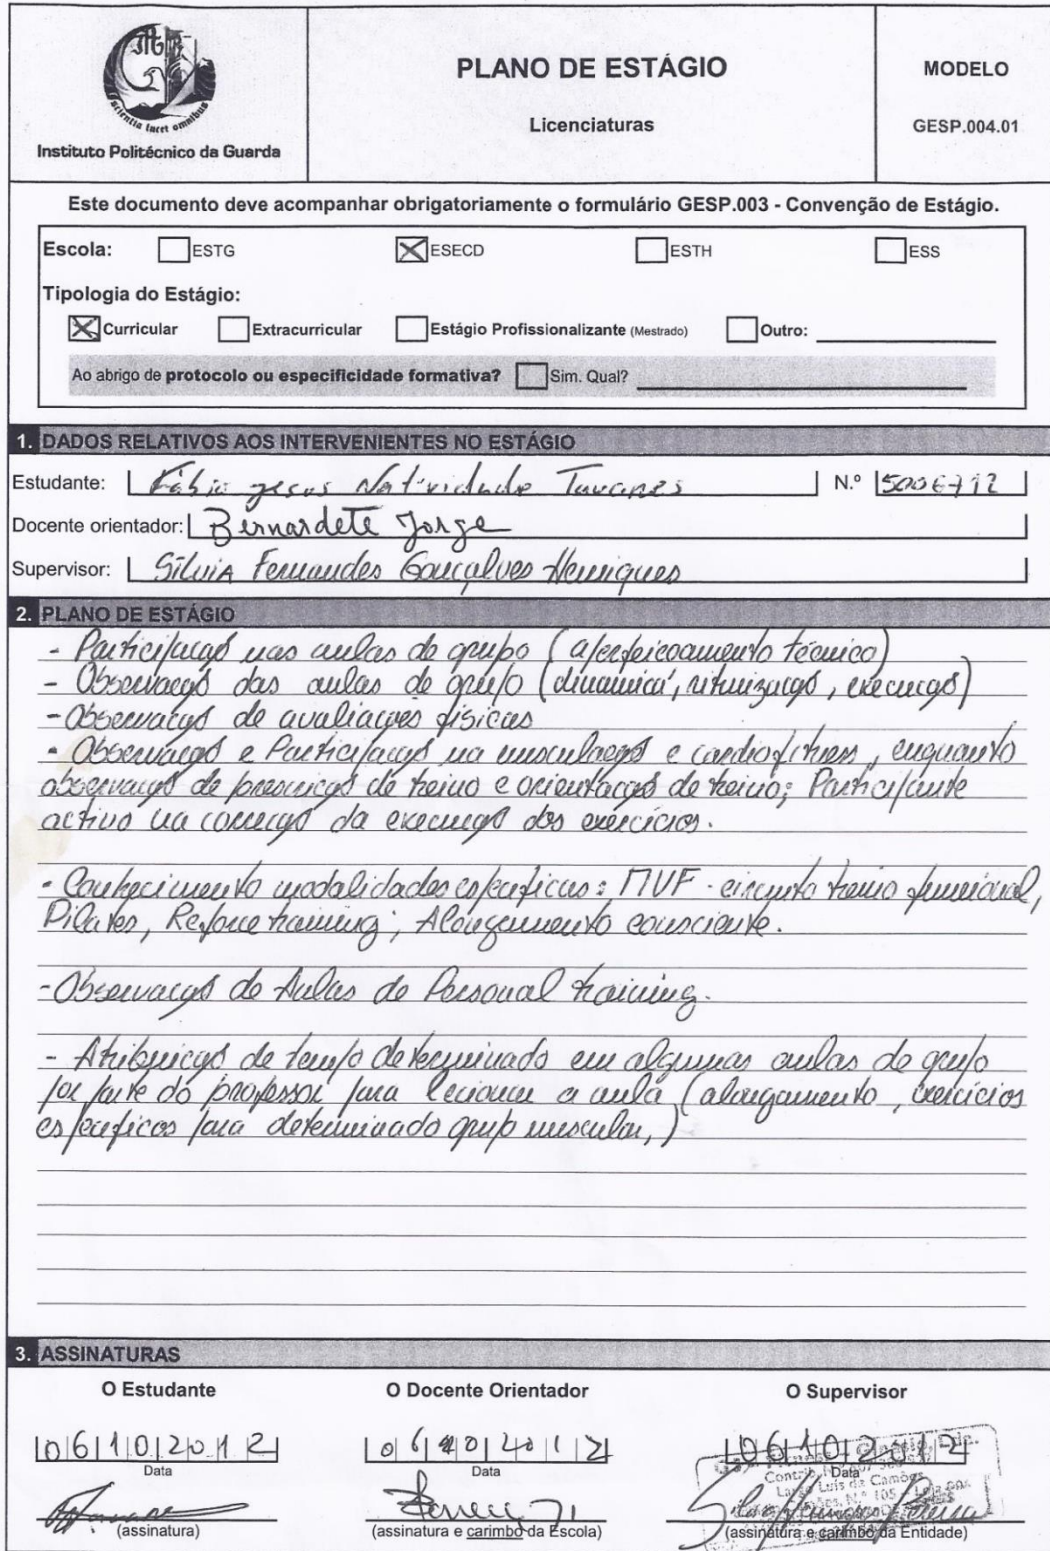 PLANO DE ESTÁGIO
Licenciaturas
MODELO
GESP.004.01
scientia lucet omnibus
Instituto Politécnico da Guarda
Este documento deve acompanhar obrigatoriamente o formulário GESP.003 - Convenção de Estágio.
Escola: ESTG ESECD ESTH ESS
Tipologia do Estágio:
Curricular Extracurricular Estágio Profissionalizante (Mestrado) Outro:
Ao abrigo de protocolo ou especificidade formativa? Sim. Qual?
1. DADOS RELATIVOS AOS INTERVENIENTES NO ESTÁGIO
Estudante: Fábio Jesus Natividade Tavares N.º 5006712
Docente orientador: Bernardete Jorge
Supervisor: Silvia Fernandes Gonçalves Henriques
2. PLANO DE ESTÁGIO
- Participação nas aulas de grupo (aperfeicoamento técnico)
- Observação das aulas de grupo (dinamica, ritmização, execução)
- Observação de avaliações físicas
- Observação e Participação na musculação e cardiofitness, enquanto
observação de prescrição de treino e orientação de treino; Participante
activo na correção da execução dos exercícios.
- Conhecimento modalidades especificas: MVF - circuito treino funcional,
Pilates, Reforce training; Alongamento consciente.
- Observação de Aulas de Personal training.
- Atribuição de tempo determinado em algumas aulas de grupo
por parte do professor para lecionar a aula (alongamento, exercícios
especificos para determinado grupo muscular,)
3. ASSINATURAS
O Estudante O Docente Orientador O Supervisor
06102012 06102012 06102012
Data Data Data
(assinatura) (assinatura e carimbo da Escola) (assinatura e carimbo da Entidade)